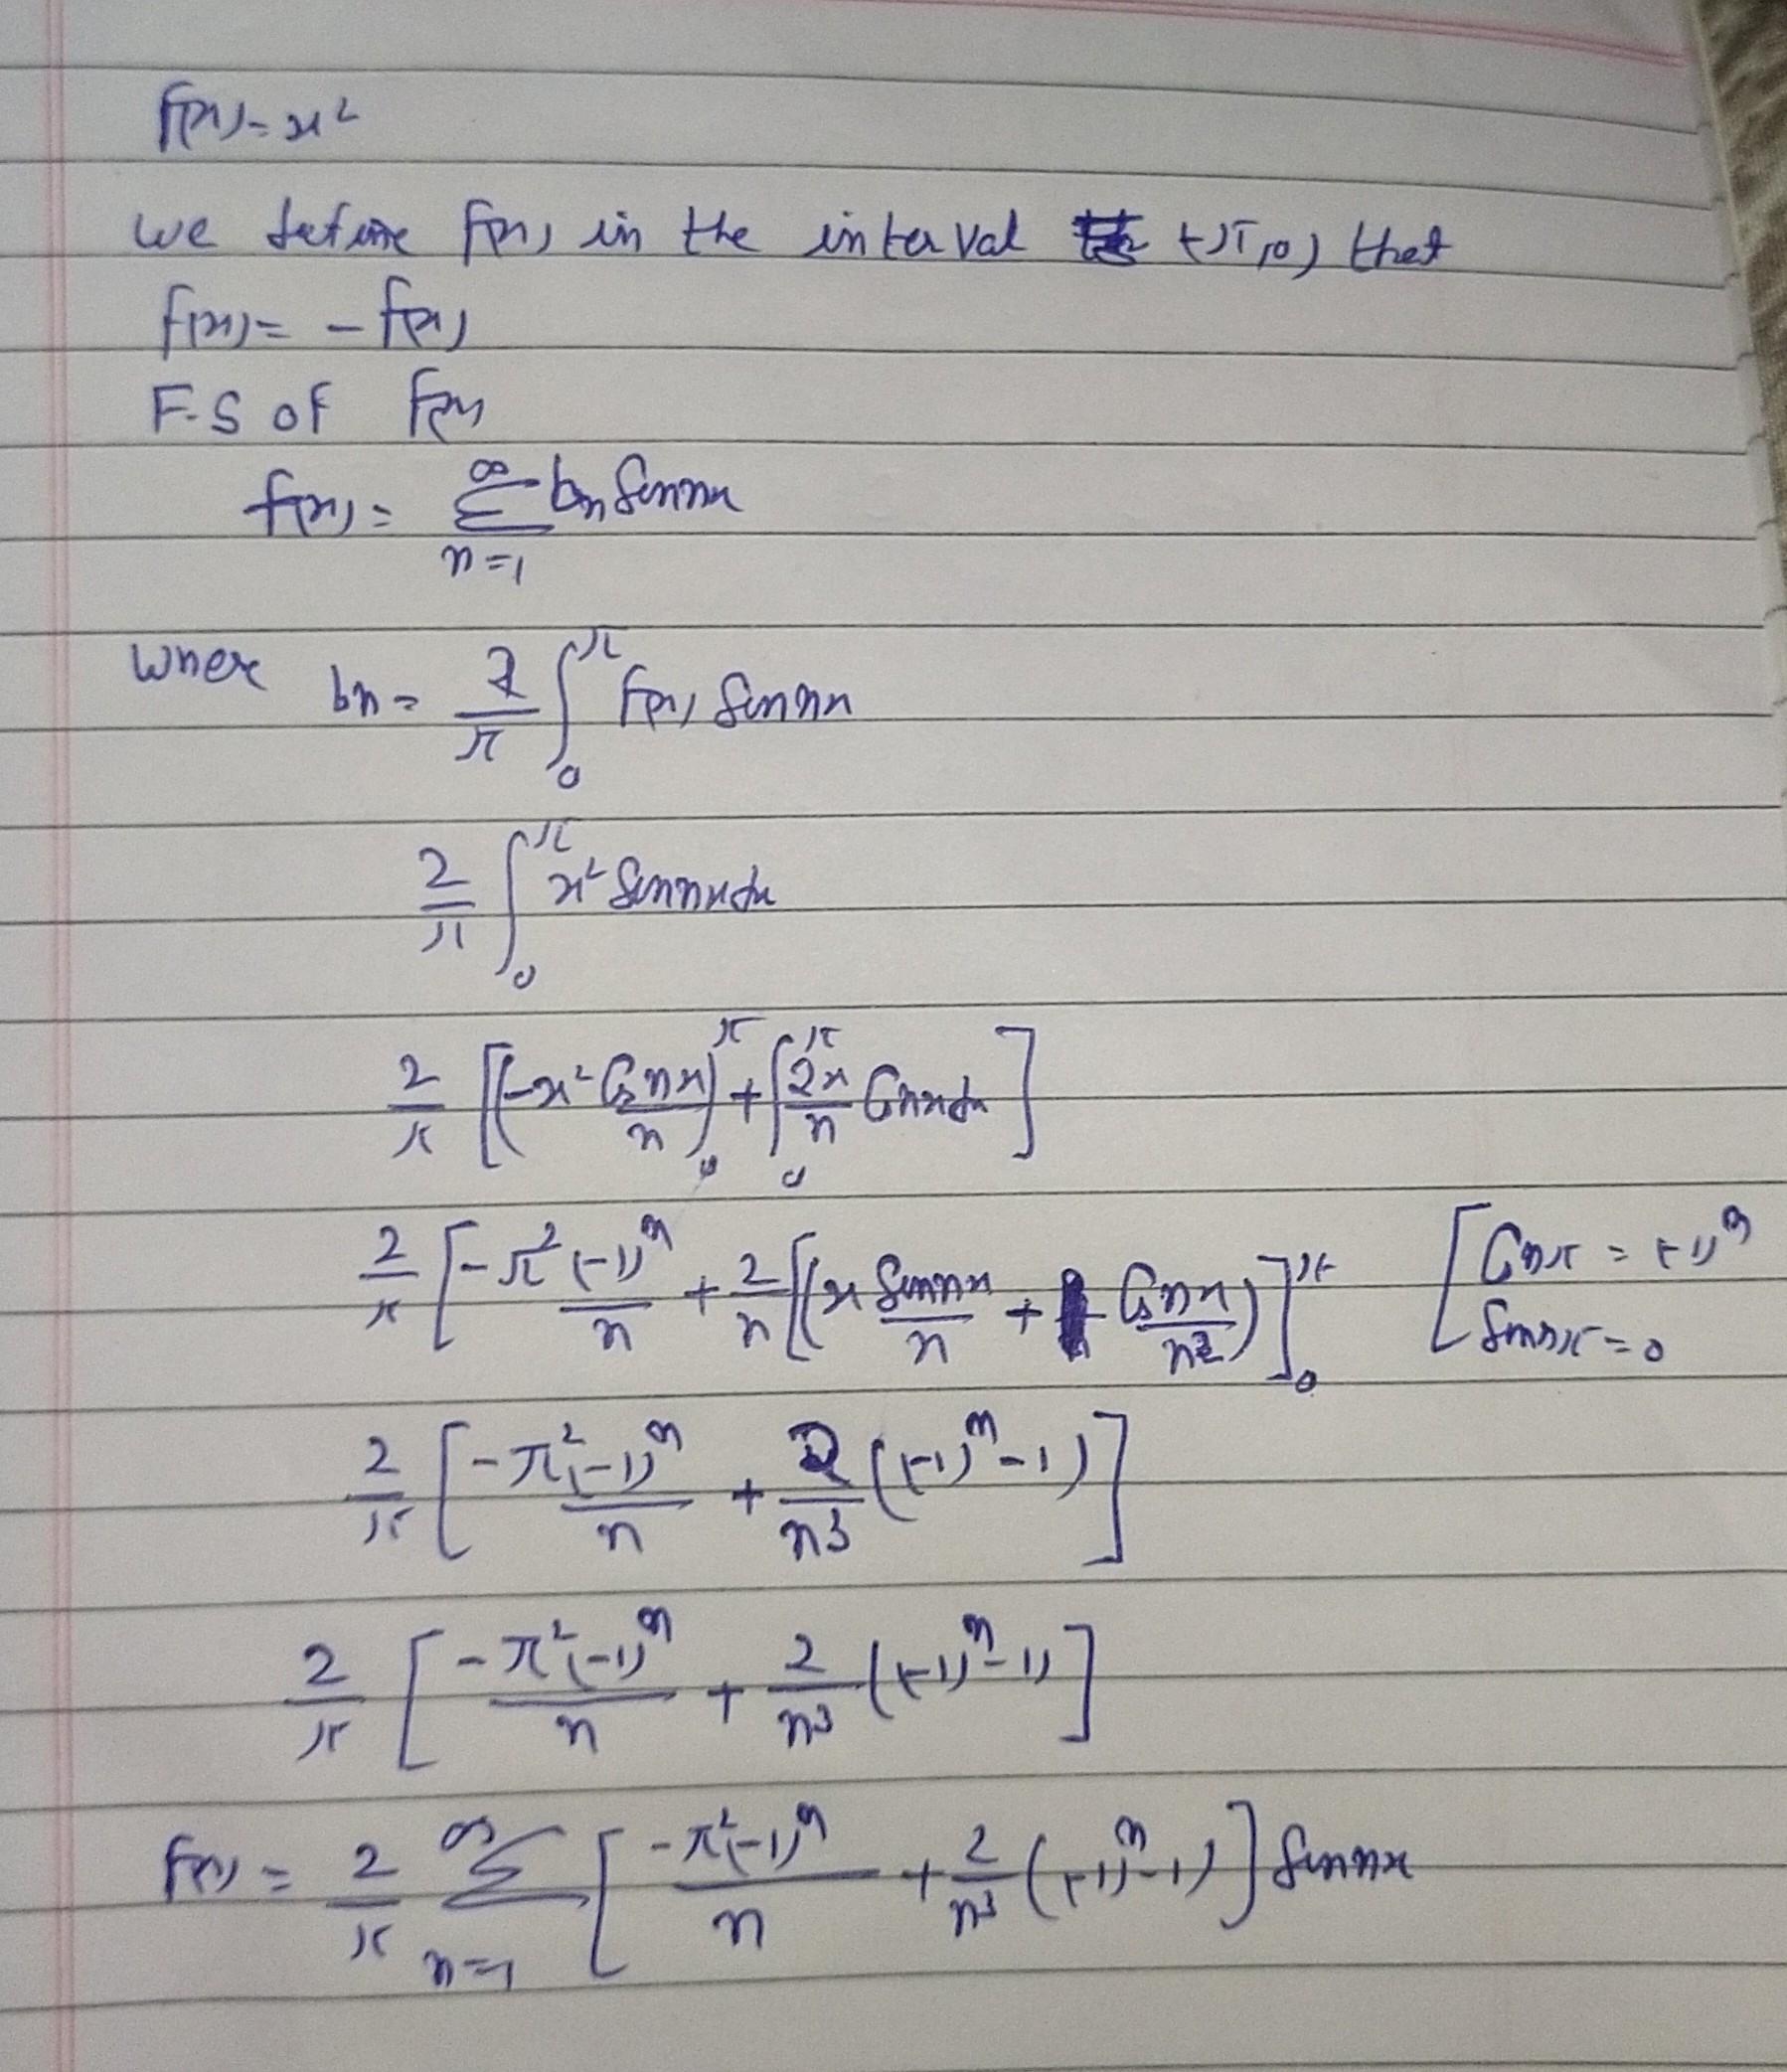 f(x) = x²
we define f(x) in the interval (-π,0) that
f(x) = - f(x)
F.S of f(x)
f(x) = ∞ Σ n=1 bn Sin nx
where bn = 2/π ∫₀^π f(x) Sin nx
2/π ∫₀^π x² Sin nx dx
2/π [(-x² Cos nx / n)₀^π + ∫₀^π 2x/n Cos nx dx]
2/π [-π² (-1)ⁿ / n + 2/n [(x Sin nx / n + Cos nx / n²)]₀^π [Cos nπ = (-1)ⁿ Sin nπ = 0
2/π [-π² (-1)ⁿ / n + 2/n³ ((-1)ⁿ - 1)]
2/π [-π² (-1)ⁿ / n + 2/n³ ((-1)ⁿ - 1)]
f(x) = 2/π ∞ Σ n=1 [-π² (-1)ⁿ / n + 2/n³ ((-1)ⁿ - 1)] Sin nx